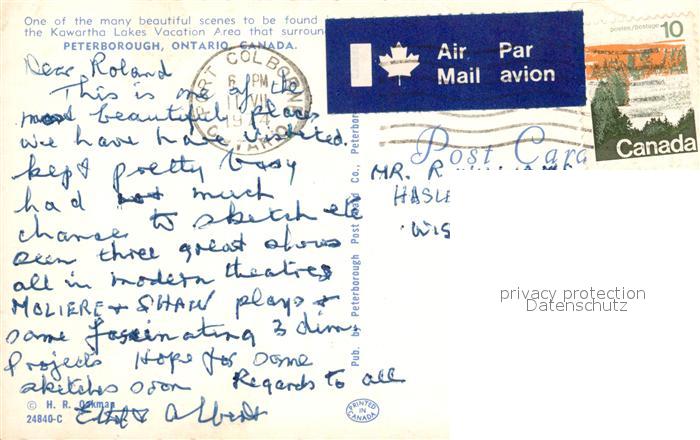 One of the many beautiful scenes to be found
the Kawartha Lakes Vacation Area that surroun
PETERBOROUGH, ONTARIO, CANADA.
Dear Roland
This is one of the
most beautiful places
we have have visited.
kept pretty busy
had not much
chance to sketch etc
seen three great shows
all in modern theatres
MOLIERE + SHAW plays +
some fascinating 3 dim.
projects Hope for some
sketches soon Regards to all
Albert
© H. R. Oakman
24840-C
PRINTED IN CANADA
Pub. by Peterborough Post Card Co., Peterbor
PORT COLBORNE
6 PM
11 VII
19
ONTARIO
Air Par
Mail avion
postes/postage
10
Canada
Post Card
MR. R
HASLE
WIS
privacy protection
Datenschutz